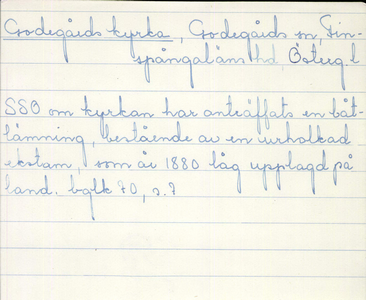 Godegårds kyrka, Godegårds sn, Fin-
spångaläns hd, Österg.l
SSO om kyrkan har anträffats en båt-
lämning, bestående av en urholkad
ekstam, som år 1880 låg upplagd på
land. bglk 70, s. 7